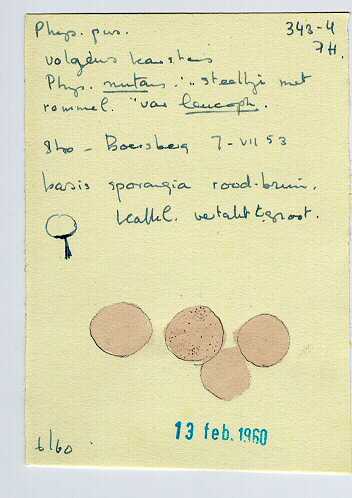 Phys. pus.
343-4
7H.
volgens Karstens
Phys. nutans "steeltje met
rommel." var leucoph.
- Boersberg 7-VII 53
basis sporangia rood-bruin.
vertakt & groot.
6/60
13 feb. 1960